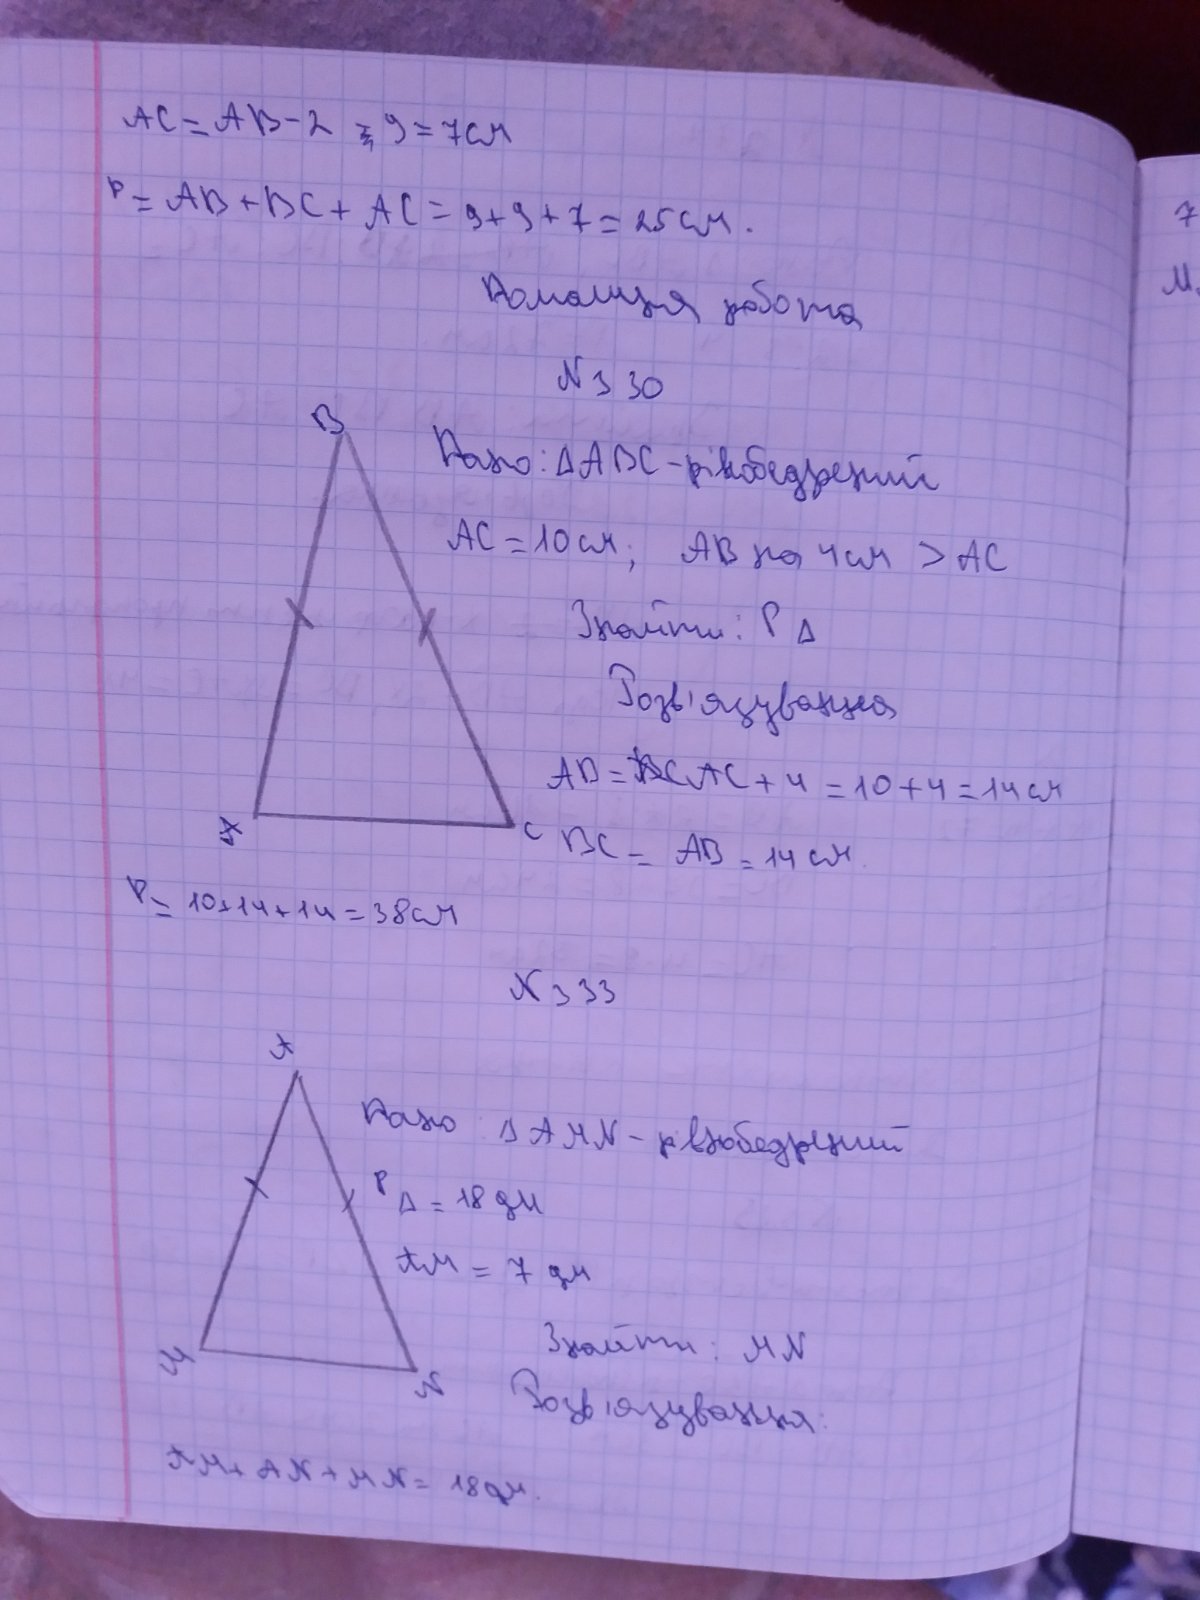 AC = AB - 2 = 9 = 7см
P = AB + BC + AC = 9 + 9 + 7 = 25см.
Домашня робота
N 330
B
Дано: Δ ABC - рівнобедрений
AC = 10см; AB на 4см > AC
Знайти: P Δ
Розв'язування
AB = AC + 4 = 10 + 4 = 14см
A
C
BC = AB = 14см.
P = 10 + 14 + 14 = 38см
N 333
A
Дано: Δ AMN - рівнобедрений
P Δ = 18 дм
AM = 7 дм
Знайти: MN
M
N
Розв'язування:
AM + AN + MN = 18дм.
7
M